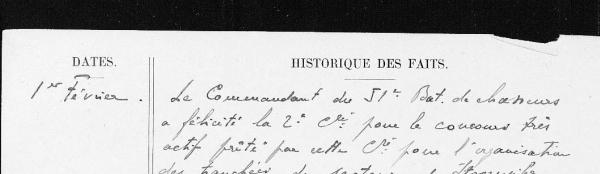 DATES.
HISTORIQUE DES FAITS.
1er Février.
Le Commandant du 51e Bat. de chasseurs
a félicité la 2e Cie pour le concours très
actif prêté par cette Cie pour l'organisation
des tranchées du secteur